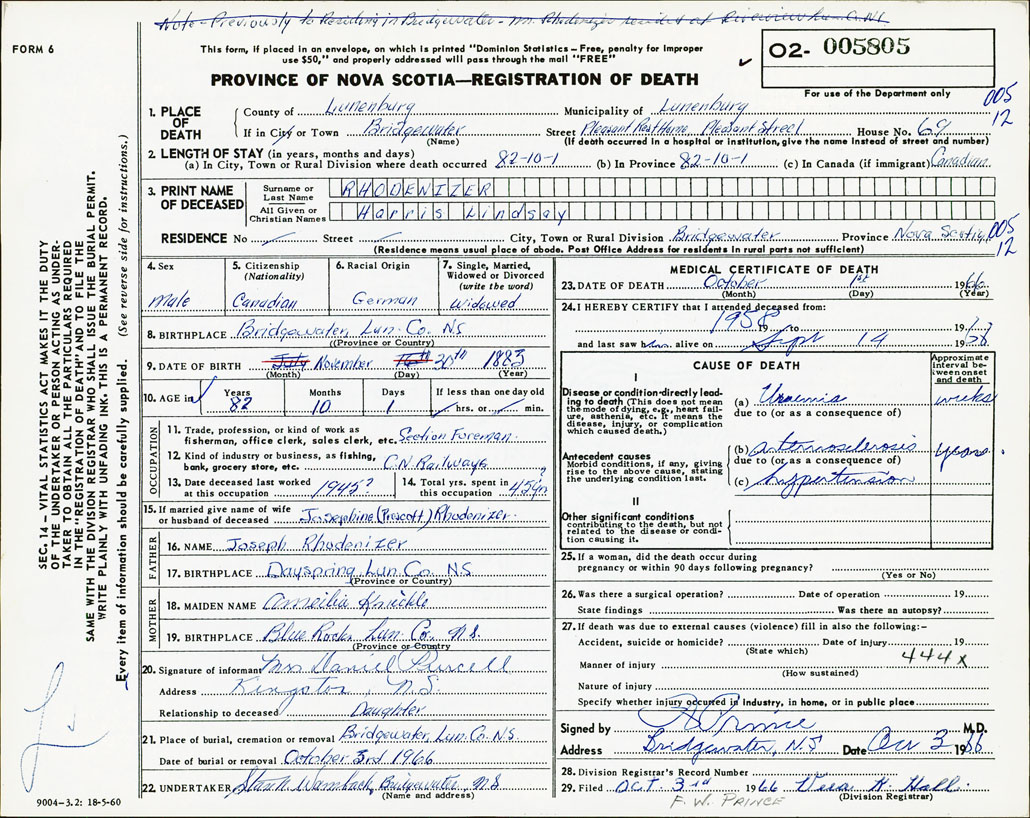 Note - Previously to Residing in Bridgewater - Mr. Rhodenizer resided at Co. N.S.
FORM 6
This form, if placed in an envelope, on which is printed "Dominion Statistics – Free, penalty for improper
use $50," and properly addressed will pass through the mail "FREE"
O2- 005805
For use of the Department only
PROVINCE OF NOVA SCOTIA—REGISTRATION OF DEATH
005
12
1. PLACE OF DEATH
County of Lunenburg Municipality of Lunenburg
If in City or Town Bridgewater Street Pleasant Rest Home, Pleasant Street House No. 69
(Name) (If death occurred in a hospital or institution, give the name instead of street and number)
2. LENGTH OF STAY (in years, months and days)
(a) In City, Town or Rural Division where death occurred 82-10-1 (b) In Province 82-10-1 (c) In Canada (if immigrant) Canadian
3. PRINT NAME OF DECEASED
Surname or Last Name RHODENIZER
All Given or Christian Names Harris Lindsay
RESIDENCE No Street City, Town or Rural Division Bridgewater Province Nova Scotia
(Residence means usual place of abode. Post Office Address for residents in rural parts not sufficient)
005
12
4. Sex
Male
5. Citizenship
(Nationality)
Canadian
6. Racial Origin
German
7. Single, Married,
Widowed or Divorced
(write the word)
Widowed
8. BIRTHPLACE Bridgewater, Lun. Co. N.S
(Province or Country)
9. DATE OF BIRTH July November 16th 30th 1883
(Month) (Day) (Year)
10. AGE in
Years Months Days If less than one day old
82 10 1 hrs. or min.
OCCUPATION
11. Trade, profession, or kind of work as
fisherman, office clerk, sales clerk, etc. Section Foreman
12. Kind of industry or business, as fishing,
bank, grocery store, etc. C.N. Railways
13. Date deceased last worked
at this occupation 1945?
14. Total yrs. spent in
this occupation 45 yr ?
15. If married give name of wife
or husband of deceased Josephine (Prescott) Rhodenizer
FATHER
16. NAME Joseph Rhodenizer
17. BIRTHPLACE Dayspring, Lun. Co. N.S
(Province or Country)
MOTHER
18. MAIDEN NAME Amelia Knickle
19. BIRTHPLACE Blue Rocks Lun. Co. N.S.
(Province or Country)
20. Signature of informant Mrs Daniel Purcell
Address Kingston, N.S.
Relationship to deceased Daughter
21. Place of burial, cremation or removal Bridgewater, Lun. Co. N.S.
Date of burial or removal October 3rd 1966
22. UNDERTAKER Wamback, Bridgewater, N.S
(Name and address)
MEDICAL CERTIFICATE OF DEATH
23. DATE OF DEATH October 1st 1966
(Month) (Day) (Year)
24. I HEREBY CERTIFY that I attended deceased from:
1958 19 to 19
and last saw him alive on Sept 14 19
CAUSE OF DEATH
Approximate interval between onset and death
I
Disease or condition directly leading to death (This does not mean the mode of dying, e.g., heart failure, asthenia, etc. it means the disease, injury, or complication which caused death.)
(a) Uraemia weeks
due to (or as a consequence of)
Antecedent causes
Morbid conditions, if any, giving rise to the above cause, stating the underlying condition last.
(b) arteriosclerosis years
due to (or as a consequence of)
(c) hypertension
II
Other significant conditions
contributing to the death, but not related to the disease or condition causing it.
25. If a woman, did the death occur during
pregnancy or within 90 days following pregnancy?
(Yes or No)
26. Was there a surgical operation? Date of operation 19
State findings Was there an autopsy?
27. If death was due to external causes (violence) fill in also the following:–
Accident, suicide or homicide? Date of injury 19
(State which)
444x
Manner of injury
(How sustained)
Nature of injury
Specify whether injury occurred in industry, in home, or in public place
Signed by Prince M.D.
Address Bridgewater, N.S Date Oct 3 1966
28. Division Registrar's Record Number
29. Filed OCT. 3rd 1966 Vera H. Hall
F. W. PRINCE (Division Registrar)
SEC. 14 – VITAL STATISTICS ACT MAKES IT THE DUTY
OF THE UNDERTAKER OR PERSON ACTING AS UNDERTAKER
TO OBTAIN ALL THE PARTICULARS REQUIRED
IN THE "REGISTRATION OF DEATH" AND TO FILE THE
SAME WITH THE DIVISION REGISTRAR WHO SHALL ISSUE THE BURIAL PERMIT.
WRITE PLAINLY WITH UNFADING INK. THIS IS A PERMANENT RECORD.
Every item of information should be carefully supplied. (See reverse side for instructions.)
9004-3.2: 18-5-60